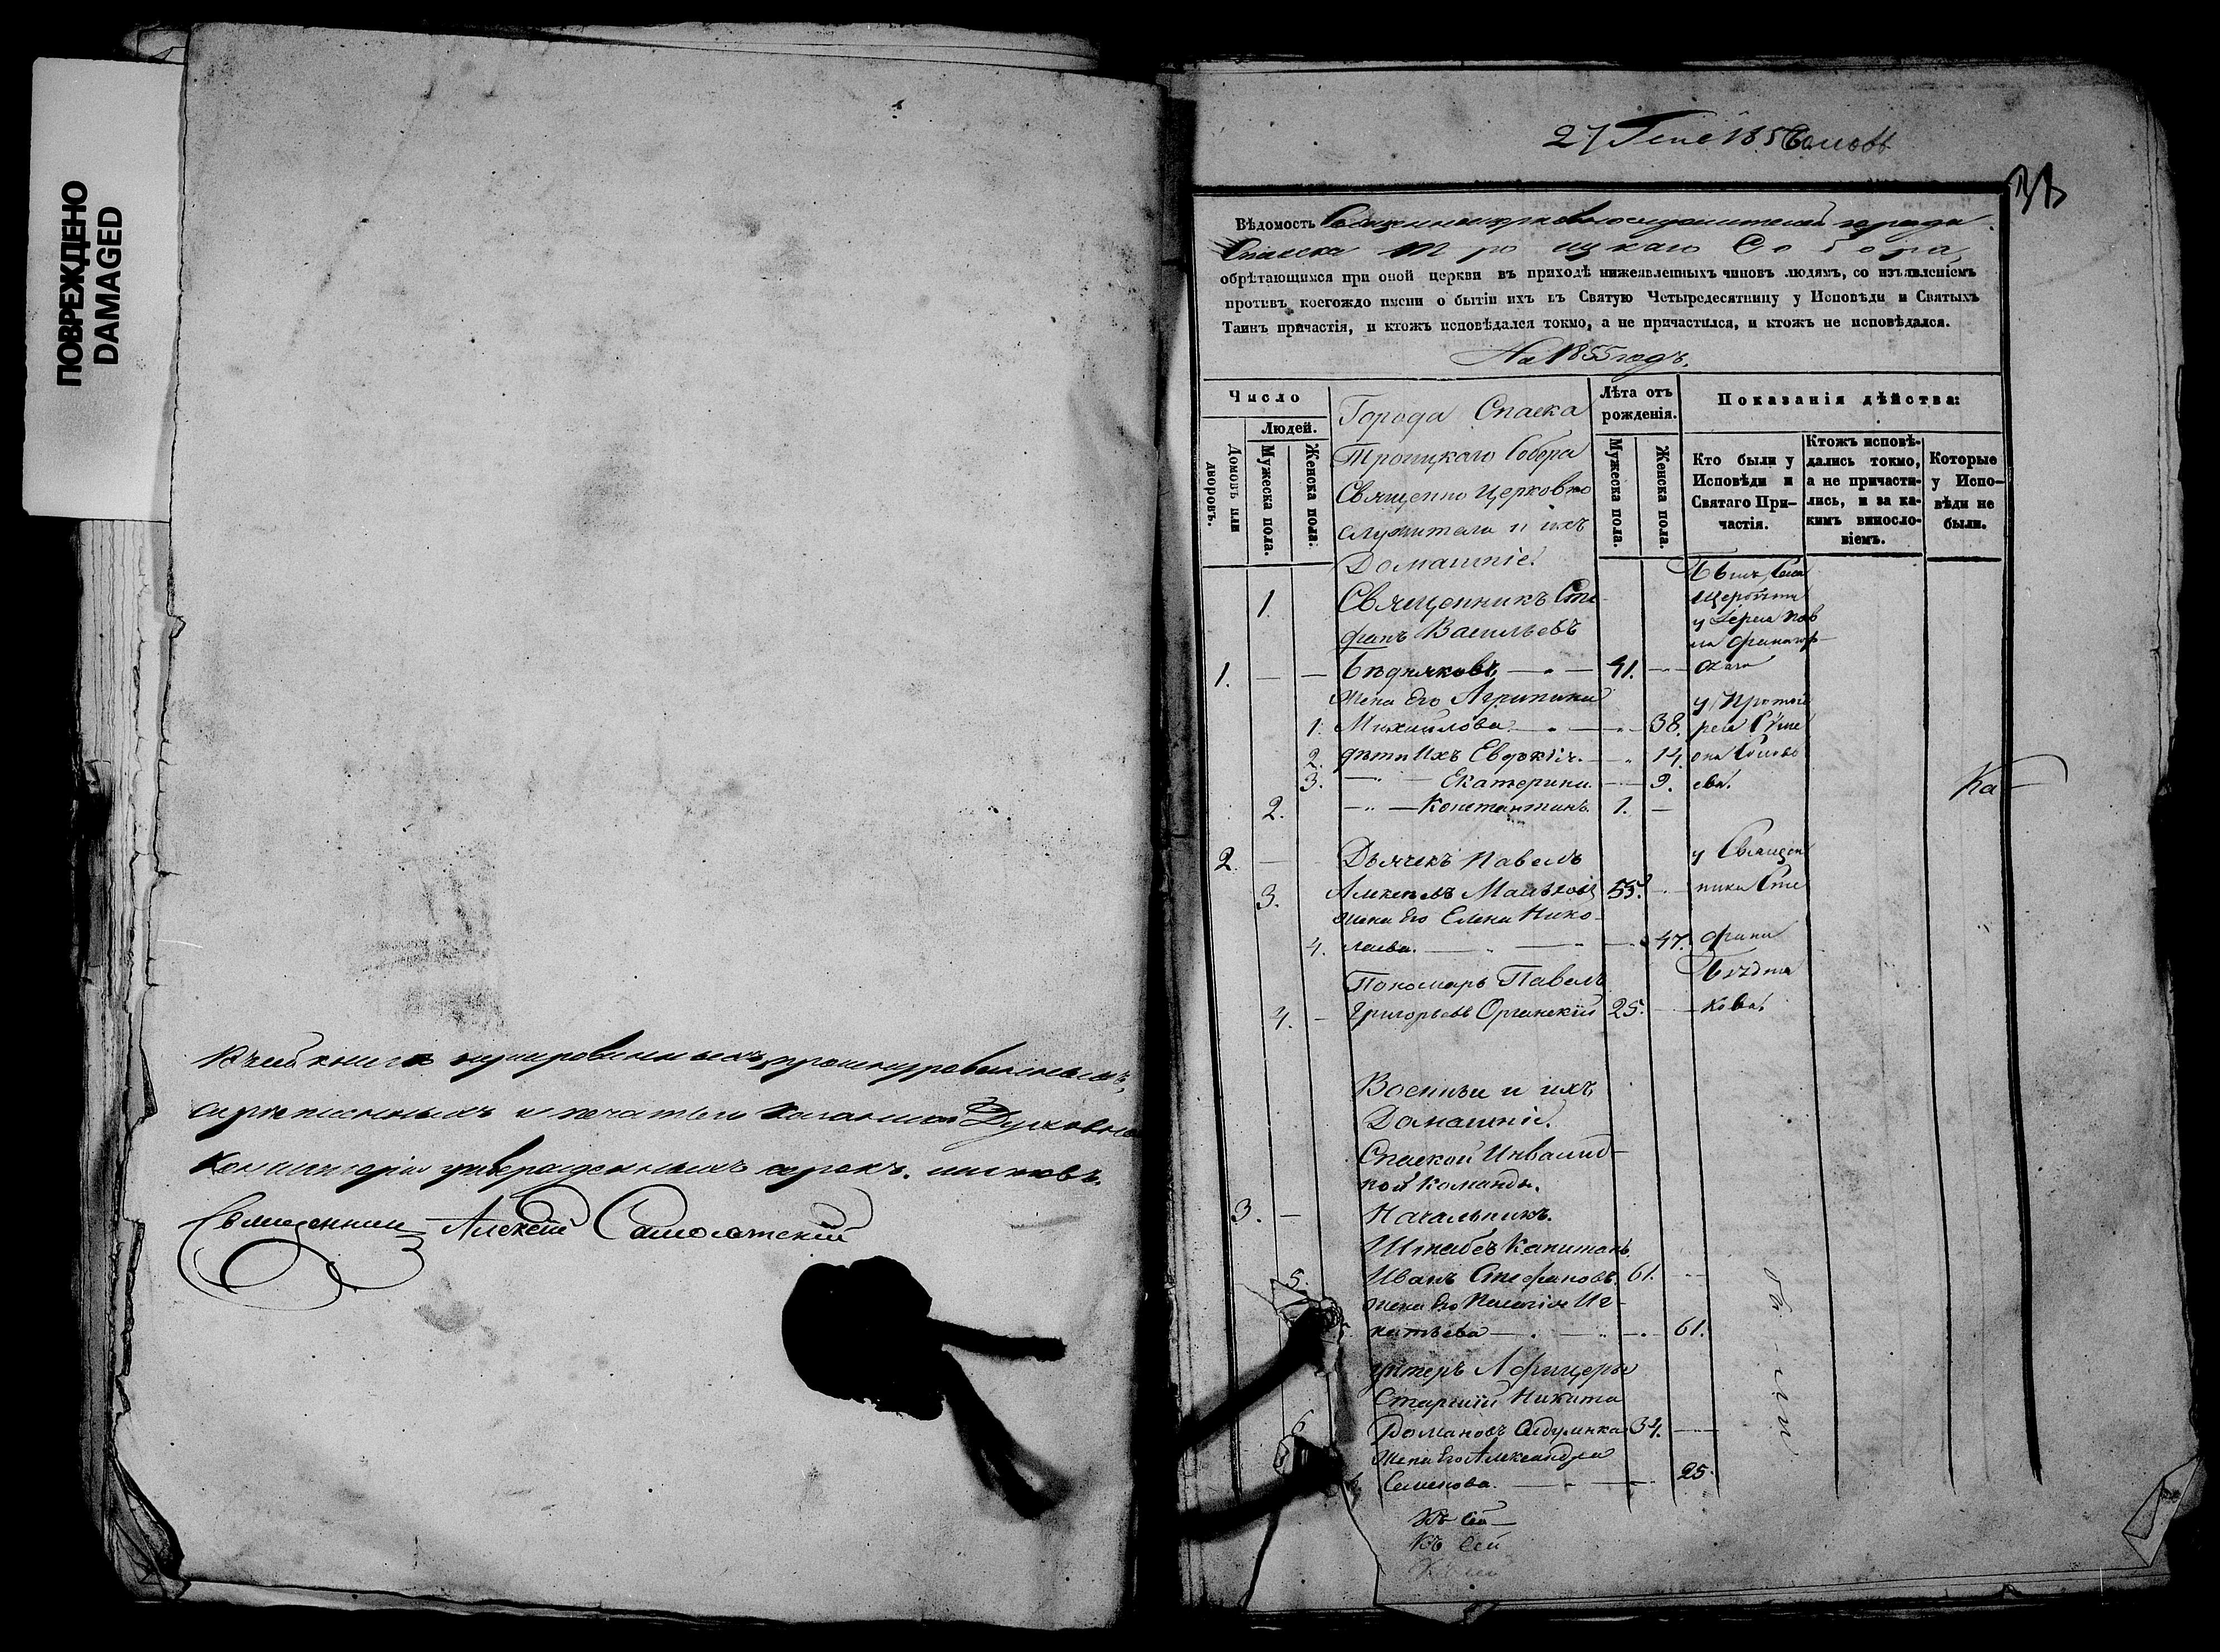 ПОВРЕЖДЕНО
DAMAGED
Въ сей книгѣ нумерованныхъ, прошнурованныхъ,
скрѣпленныхъ и печатью Казанской Духовной
Консисторіи утвержденныхъ сорокъ листовъ.
Священникъ Алексѣй
27 Генв 1856
Вѣдомость Священноцерковнослужителей города
Спасска Троицкаго Собора,
обрѣтающимся при оной церкви въ приходѣ нижеявленныхъ чиновъ людямъ, со изъявленіемъ
противъ коегождо имени о бытіи ихъ въ Святую Четыредесятницу у Исповѣди и Святыхъ
Таинъ причастія, и ктожъ исповѣдался токмо, а не причастился, и ктожъ не исповѣдался.
На 1855 годъ.
Число
Людей.
Домовъ или дворовъ.
Мужеска пола.
Женска пола.
Города Спаска
Троицкаго Собора
Священно Церковно
служители и ихъ
Домашніе.
Лѣта отъ рожденія.
Мужеска пола.
Женска пола.
Показанія дѣйства:
Кто были у Исповѣди и Святаго Причастія.
Ктожъ исповѣдались токмо, а не причастились, и за какимъ винословіемъ.
Которые у Исповѣди не были.
1. Священникъ Сте
фанъ Васильевъ
1. — — Бѣдняковъ — 41. —
Жена Его Агрипина у Протоіе
1. Михайлова — 38. рея Сѵме
2. дѣти Ихъ Евдокія — 14. она
3. — Екатерина — 9. ева.
2. — Константинъ 1. —
Ка
2. — Дьячекъ Павелъ у Священ
3. Алексѣевъ 55. ника Сте
Жена Его Елена Нико-
4. лаева. — 47. фана
Пономарь Павелъ Бѣдня
4. — Григорьевъ Органскій 25. — кова.
Военные и ихъ
Домашніе.
Спаской Инвалид-
ной Команды.
3. — Начальникъ.
Штабсъ Капитанъ
5. Иванъ Стефановъ. 61. —
Жена Его Пелагія Иг-
натьева — 61.
Унтеръ Афицеры
Старшій Никита
6 Романовъ 34. —
Жена Его Александра
Семенова. — 25.
Къ сей